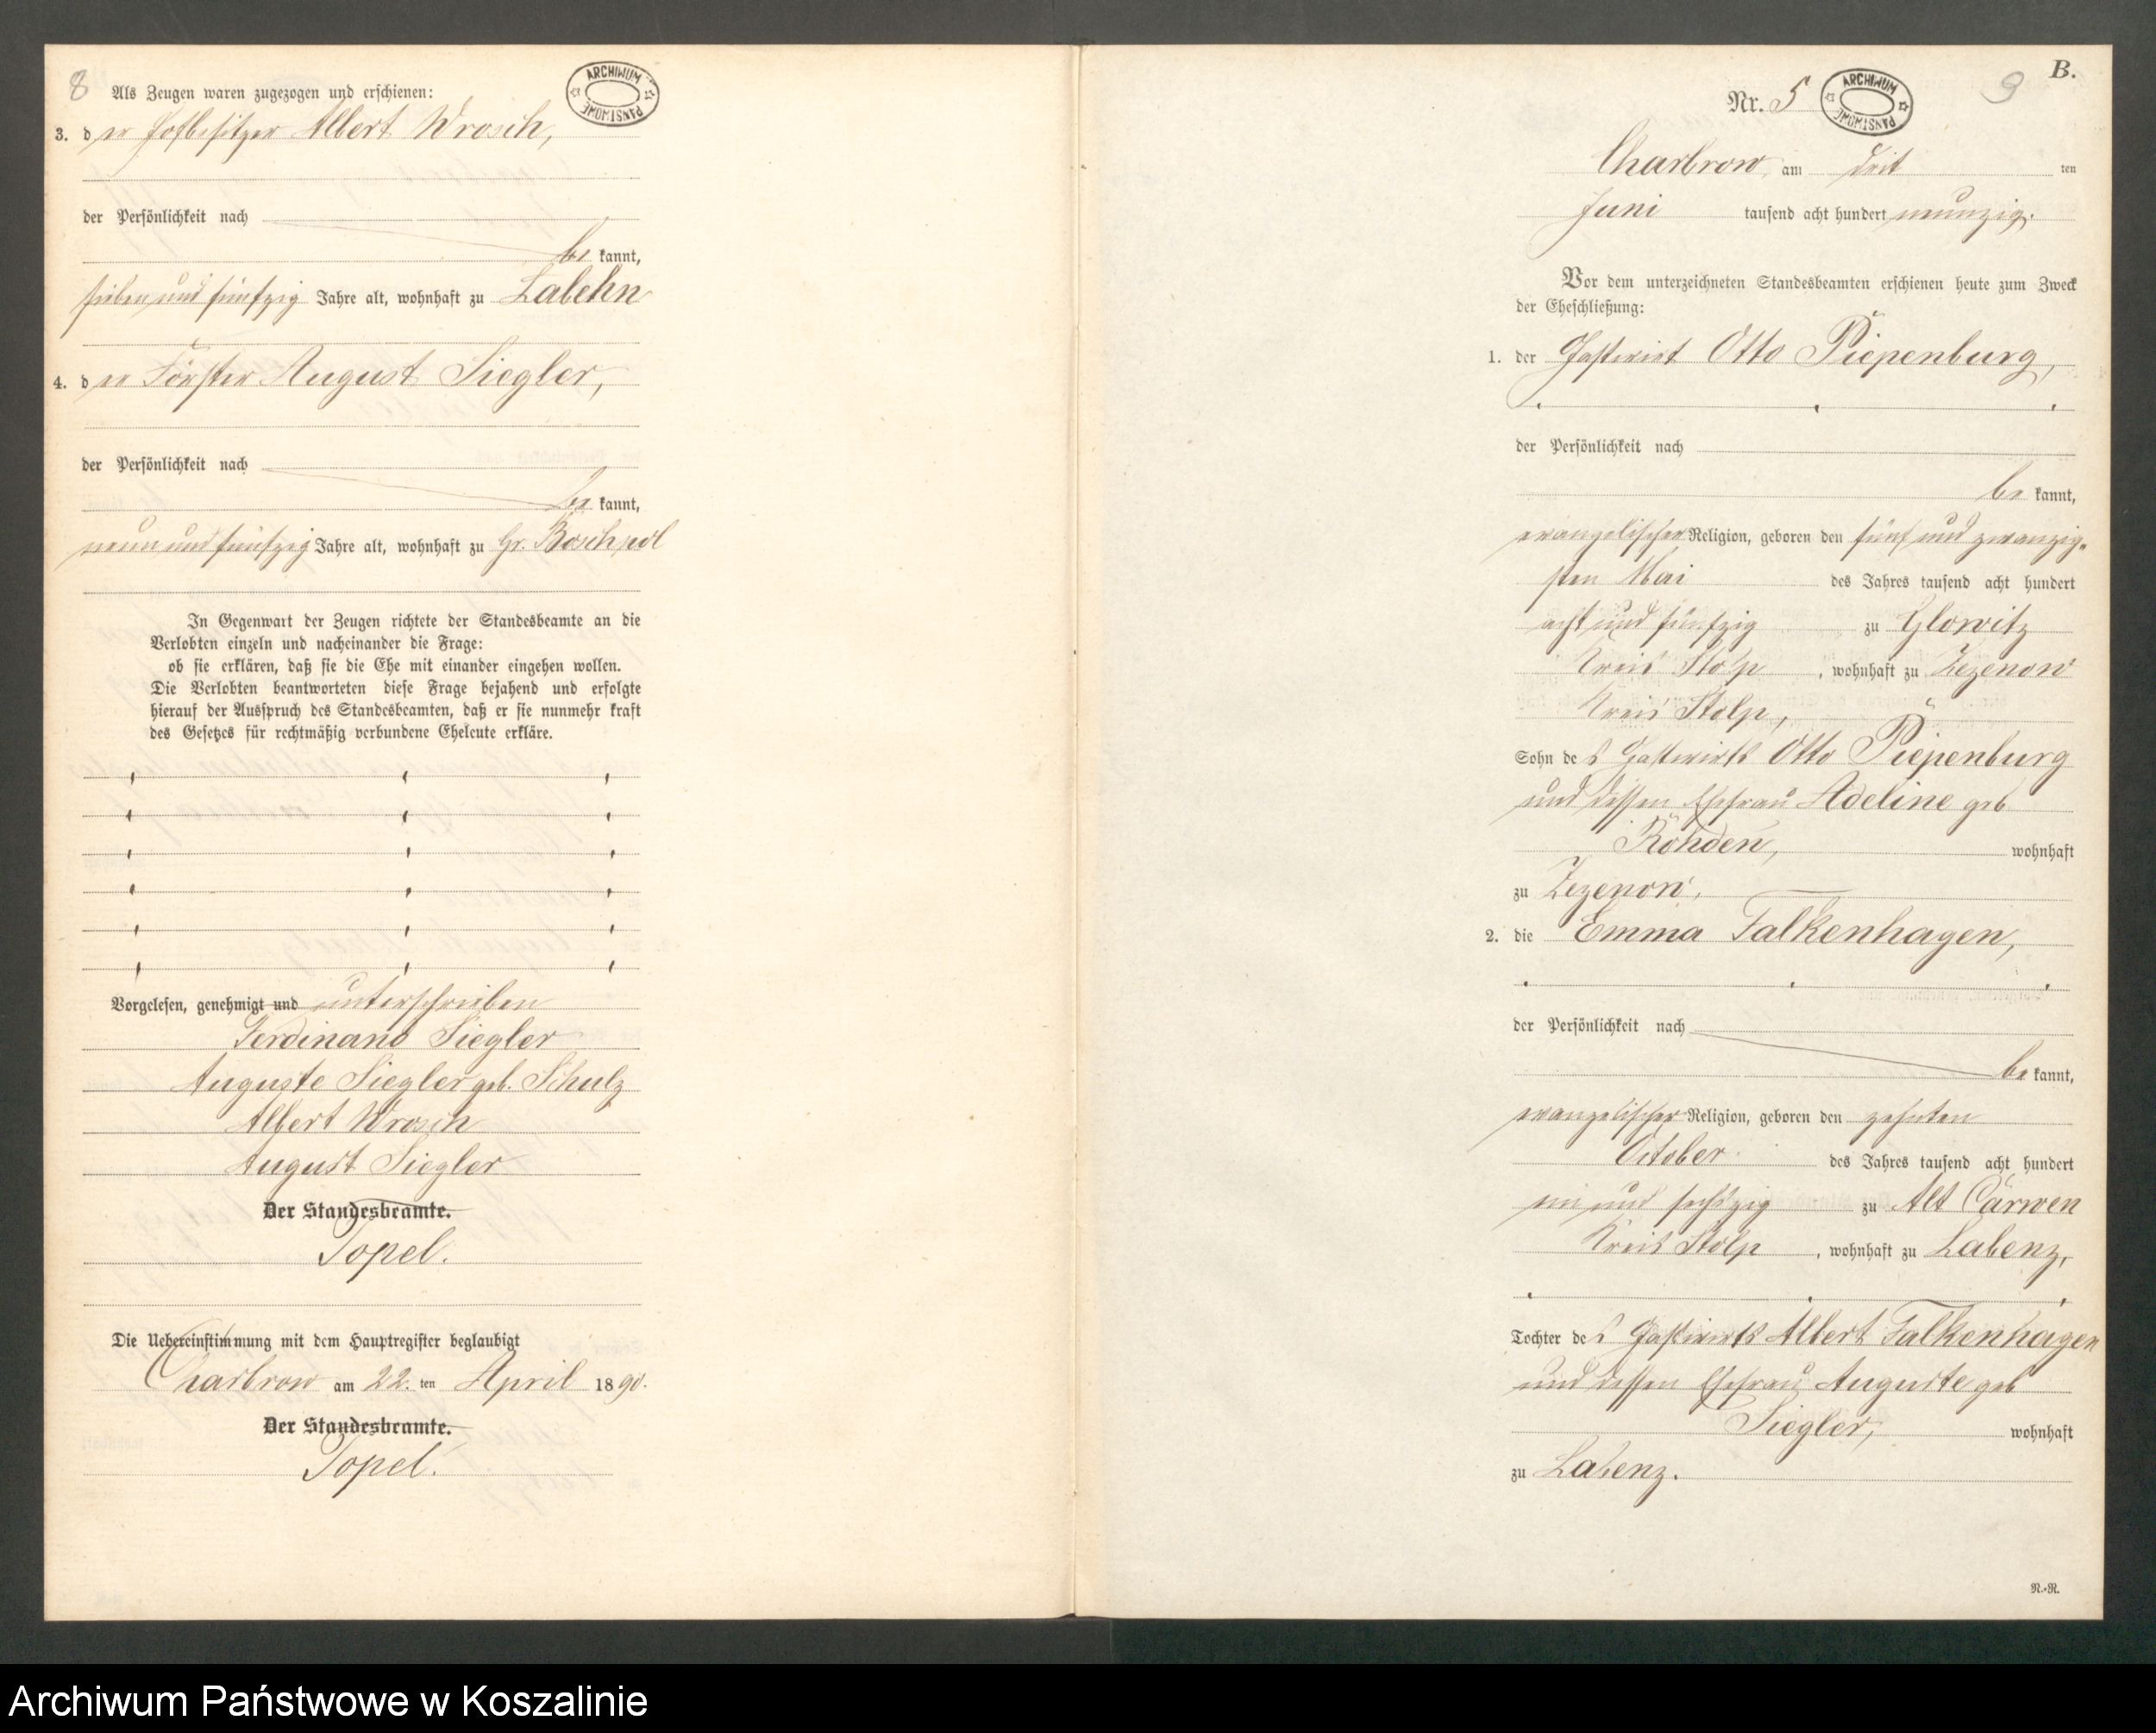 8 Als Zeugen waren zugezogen und erschienen:
ARCHIWUM PAŃSTWOWE
3. der Hofbesitzer Albert Wrosch,
der Persönlichkeit nach
be kannt,
sieben und fünfzig Jahre alt, wohnhaft zu Labehn
4. der Förster August Siegler,
der Persönlichkeit nach
be kannt,
neun und fünfzig Jahre alt, wohnhaft zu Gr. Boschpol
In Gegenwart der Zeugen richtete der Standesbeamte an die
Verlobten einzeln und nacheinander die Frage:
ob sie erklären, daß sie die Ehe mit einander eingehen wollen.
Die Verlobten beantworteten diese Frage bejahend und erfolgte
hierauf der Ausspruch des Standesbeamten, daß er sie nunmehr kraft
des Gesetzes für rechtmäßig verbundene Eheleute erkläre.
Vorgelesen, genehmigt und unterschrieben
Ferdinand Siegler
Auguste Siegler geb. Schulz
Albert Wrosch
August Siegler
Der Standesbeamte.
Topel.
Die Uebereinstimmung mit dem Hauptregister beglaubigt
Charbrow am 22. ten April 1890.
Der Standesbeamte.
Topel.
B.
9
Nr. 5
ARCHIWUM PAŃSTWOWE
Charbrow, am drit ten
Juni tausend acht hundert neunzig.
Vor dem unterzeichneten Standesbeamten erschienen heute zum Zweck
der Eheschließung:
1. der Gastwirt Otto Piepenburg,
der Persönlichkeit nach
be kannt,
evangelischer Religion, geboren den fünf und zwanzig-
sten Mai des Jahres tausend acht hundert
acht und fünfzig zu Glowitz
Kreis Stolp, wohnhaft zu Zezenow
Kreis Stolp,
Sohn des Gastwirts Otto Piepenburg
und dessen Ehefrau Adeline geb
Rohden, wohnhaft
zu Zezenow,
2. die Emma Falkenhagen,
der Persönlichkeit nach
be kannt,
evangelischer Religion, geboren den zehnten
October des Jahres tausend acht hundert
ein und sechszig zu Alt Carwen
Kreis Stolp, wohnhaft zu Labenz,
Tochter des Gastwirts Albert Falkenhagen
und dessen Ehefrau Auguste geb
Siegler, wohnhaft
zu Labenz.
R.-R.
Archiwum Państwowe w Koszalinie